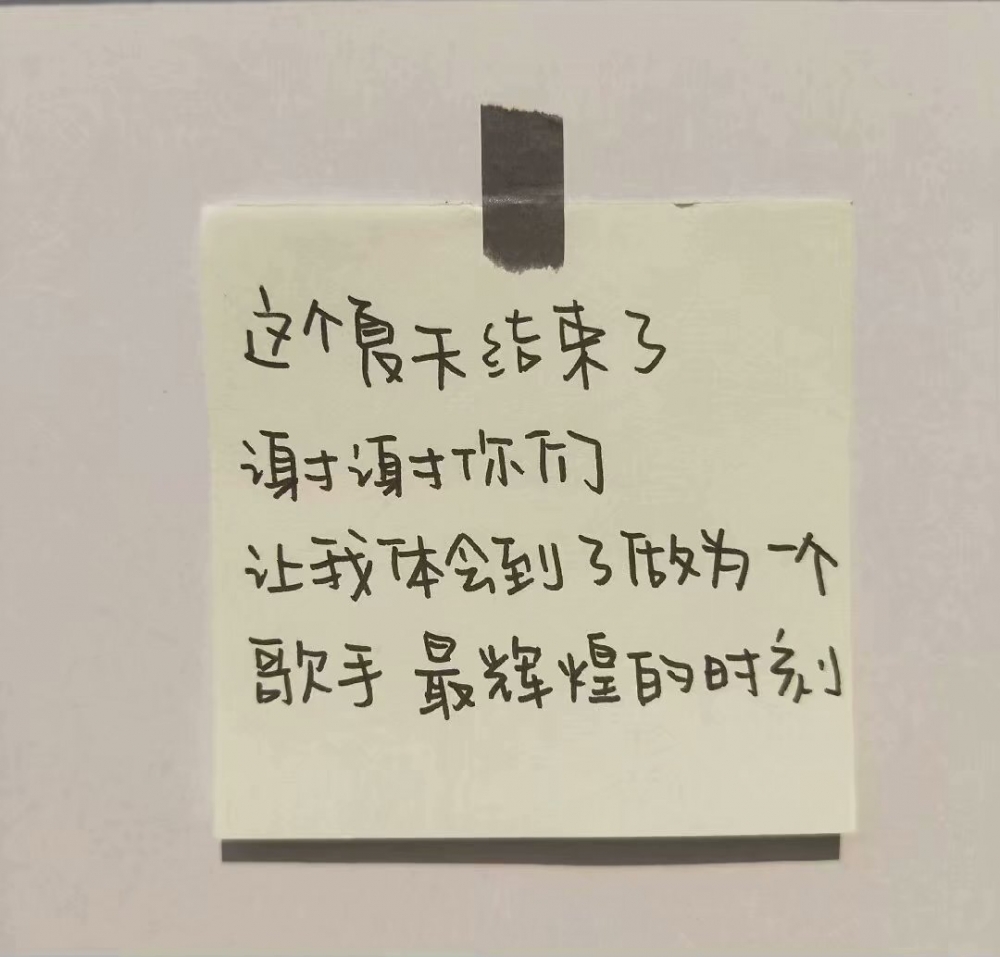 这个夏天结束了
谢谢你们
让我体会到了做为一个
歌手 最辉煌的时刻